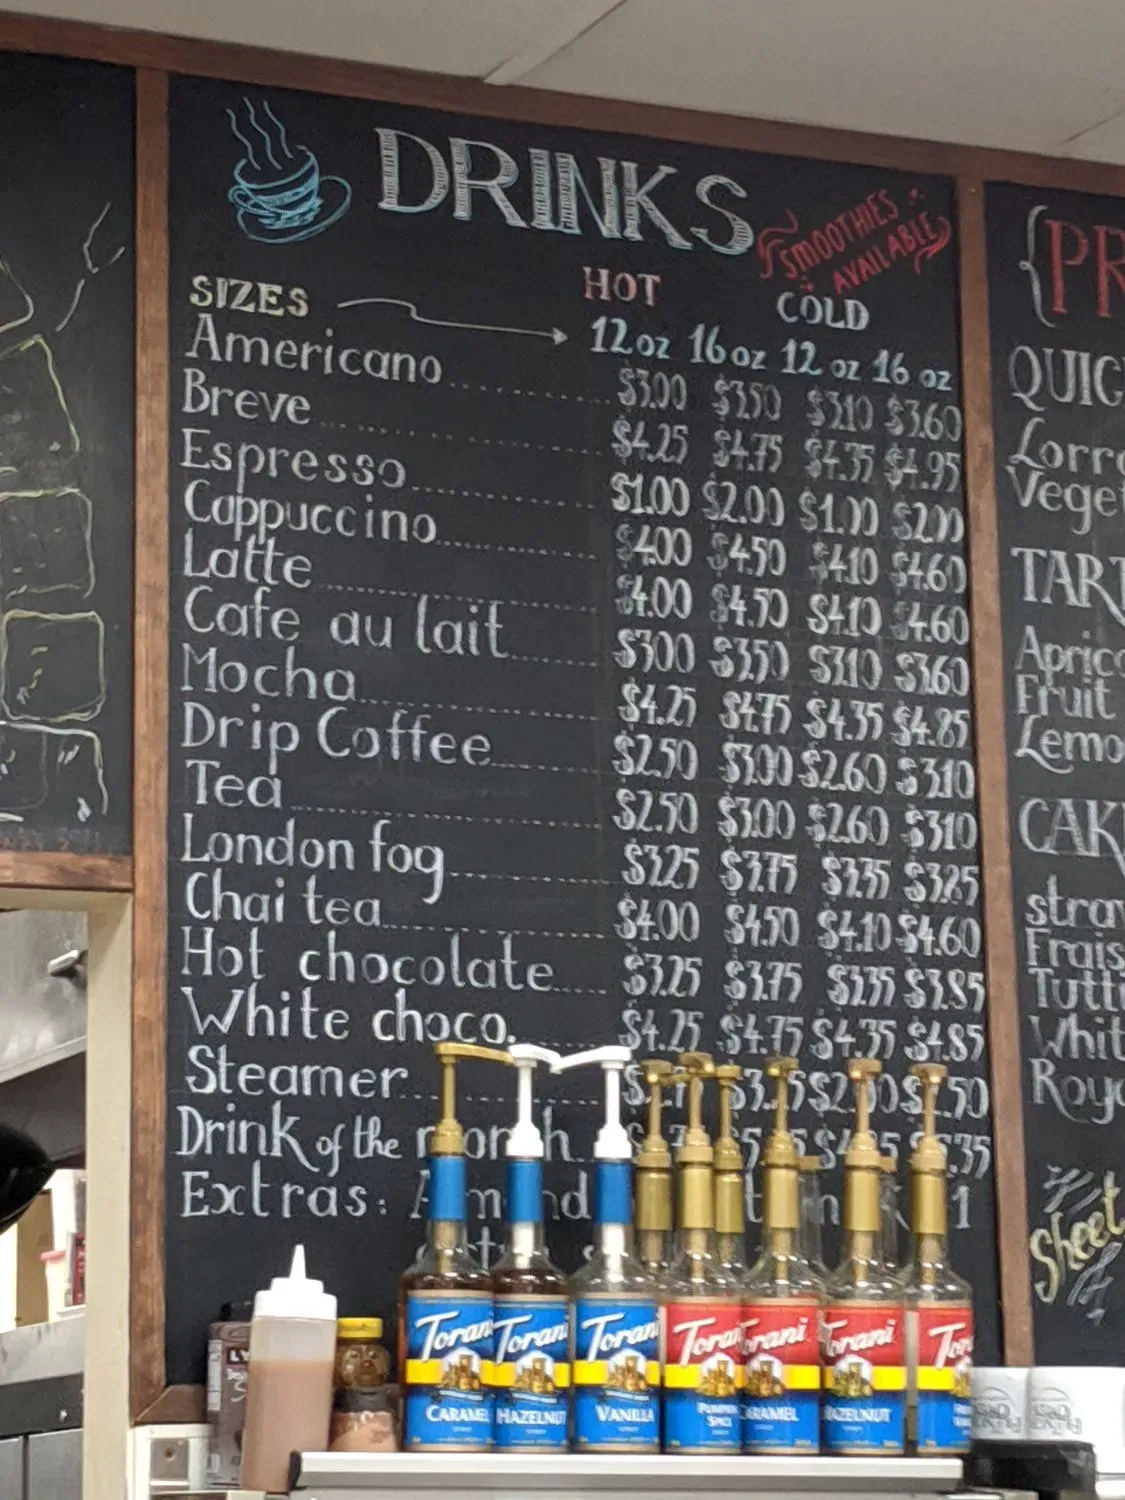 DRINKS
SMOOTHIES
AVAILABLE
SIZES HOT COLD
12oz 16oz 12 oz 16 oz
Americano $3.00 $3.50 $3.10 $3.60
Breve $4.25 $4.75 $4.35 $4.95
Espresso $1.00 $2.00 $1.00 $2.00
Cappuccino $4.00 $4.50 $4.10 $4.60
Latte $4.00 $4.50 $4.10 $4.60
Cafe au lait $3.00 $3.50 $3.10 $3.60
Mocha $4.25 $4.75 $4.35 $4.85
Drip Coffee $2.50 $3.00 $2.60 $3.10
Tea $2.50 $3.00 $2.60 $3.10
London fog $3.25 $3.75 $3.35 $3.85
Chai tea $4.00 $4.50 $4.10 $4.60
Hot chocolate $3.25 $3.75 $3.35 $3.85
White choco. $4.25 $4.75 $4.35 $4.85
Steamer
Drink of the
Extras:
{PR
QUIC
Lorr
Veget
TART
Apric
Fruit
Lemo
CAK
straw
Frais
Tutti
Whit
Roya
Sheet
Torani Torani Torani Torani Torani Torani Torani
CARAMEL HAZELNUT VANILLA PUMPKIN SPICE CARAMEL HAZELNUT